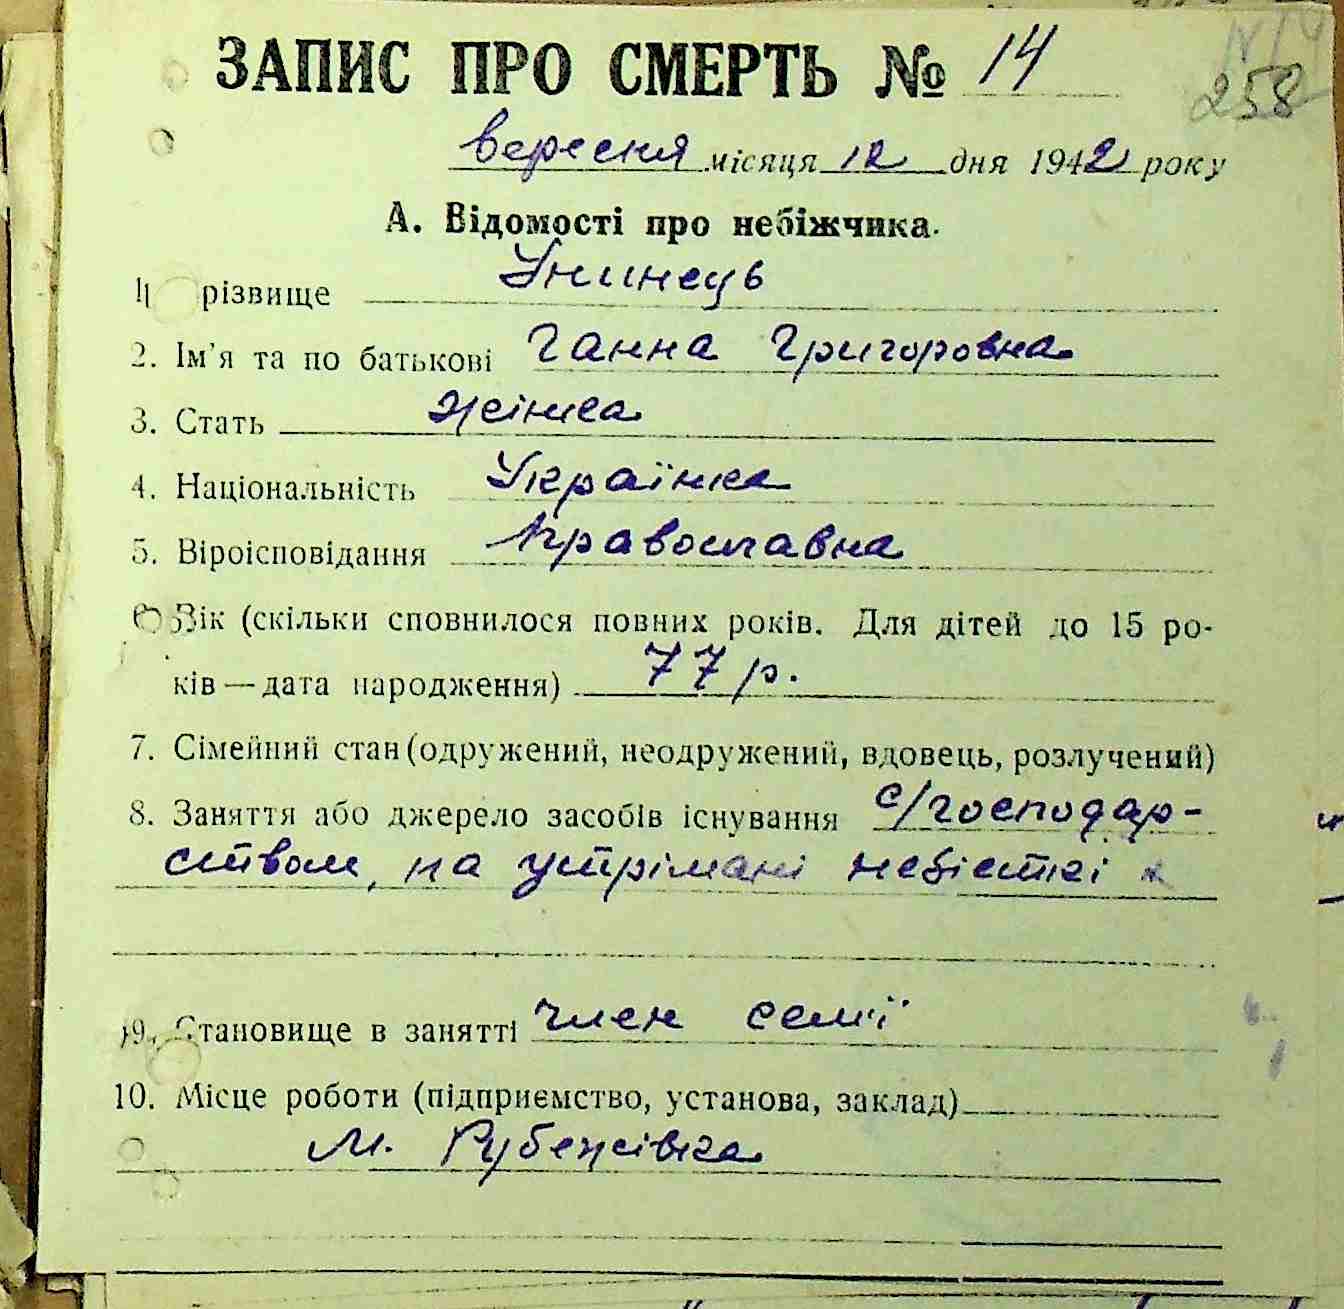 ЗАПИС ПРО СМЕРТЬ № 14
258
вересня місяця 12 дня 1942 року
А. Відомості про небіжчика.
різвище Унинець
2. Ім'я та по батькові Ганна Григоровна
3. Стать жінка
4. Національність Українка
5. Віроісповідання Православна
6. Вік (скільки сповнилося повних років. Для дітей до 15 ро-
ків — дата народження) 77 р.
7. Сімейний стан (одружений, неодружений, вдовець, розлучений)
8. Заняття або джерело засобів існування с/господар-
ством, на утрімані невісткі
9. Становище в занятті член семії
10. Місце роботи (підприємство, установа, заклад)
м. Рубежівка